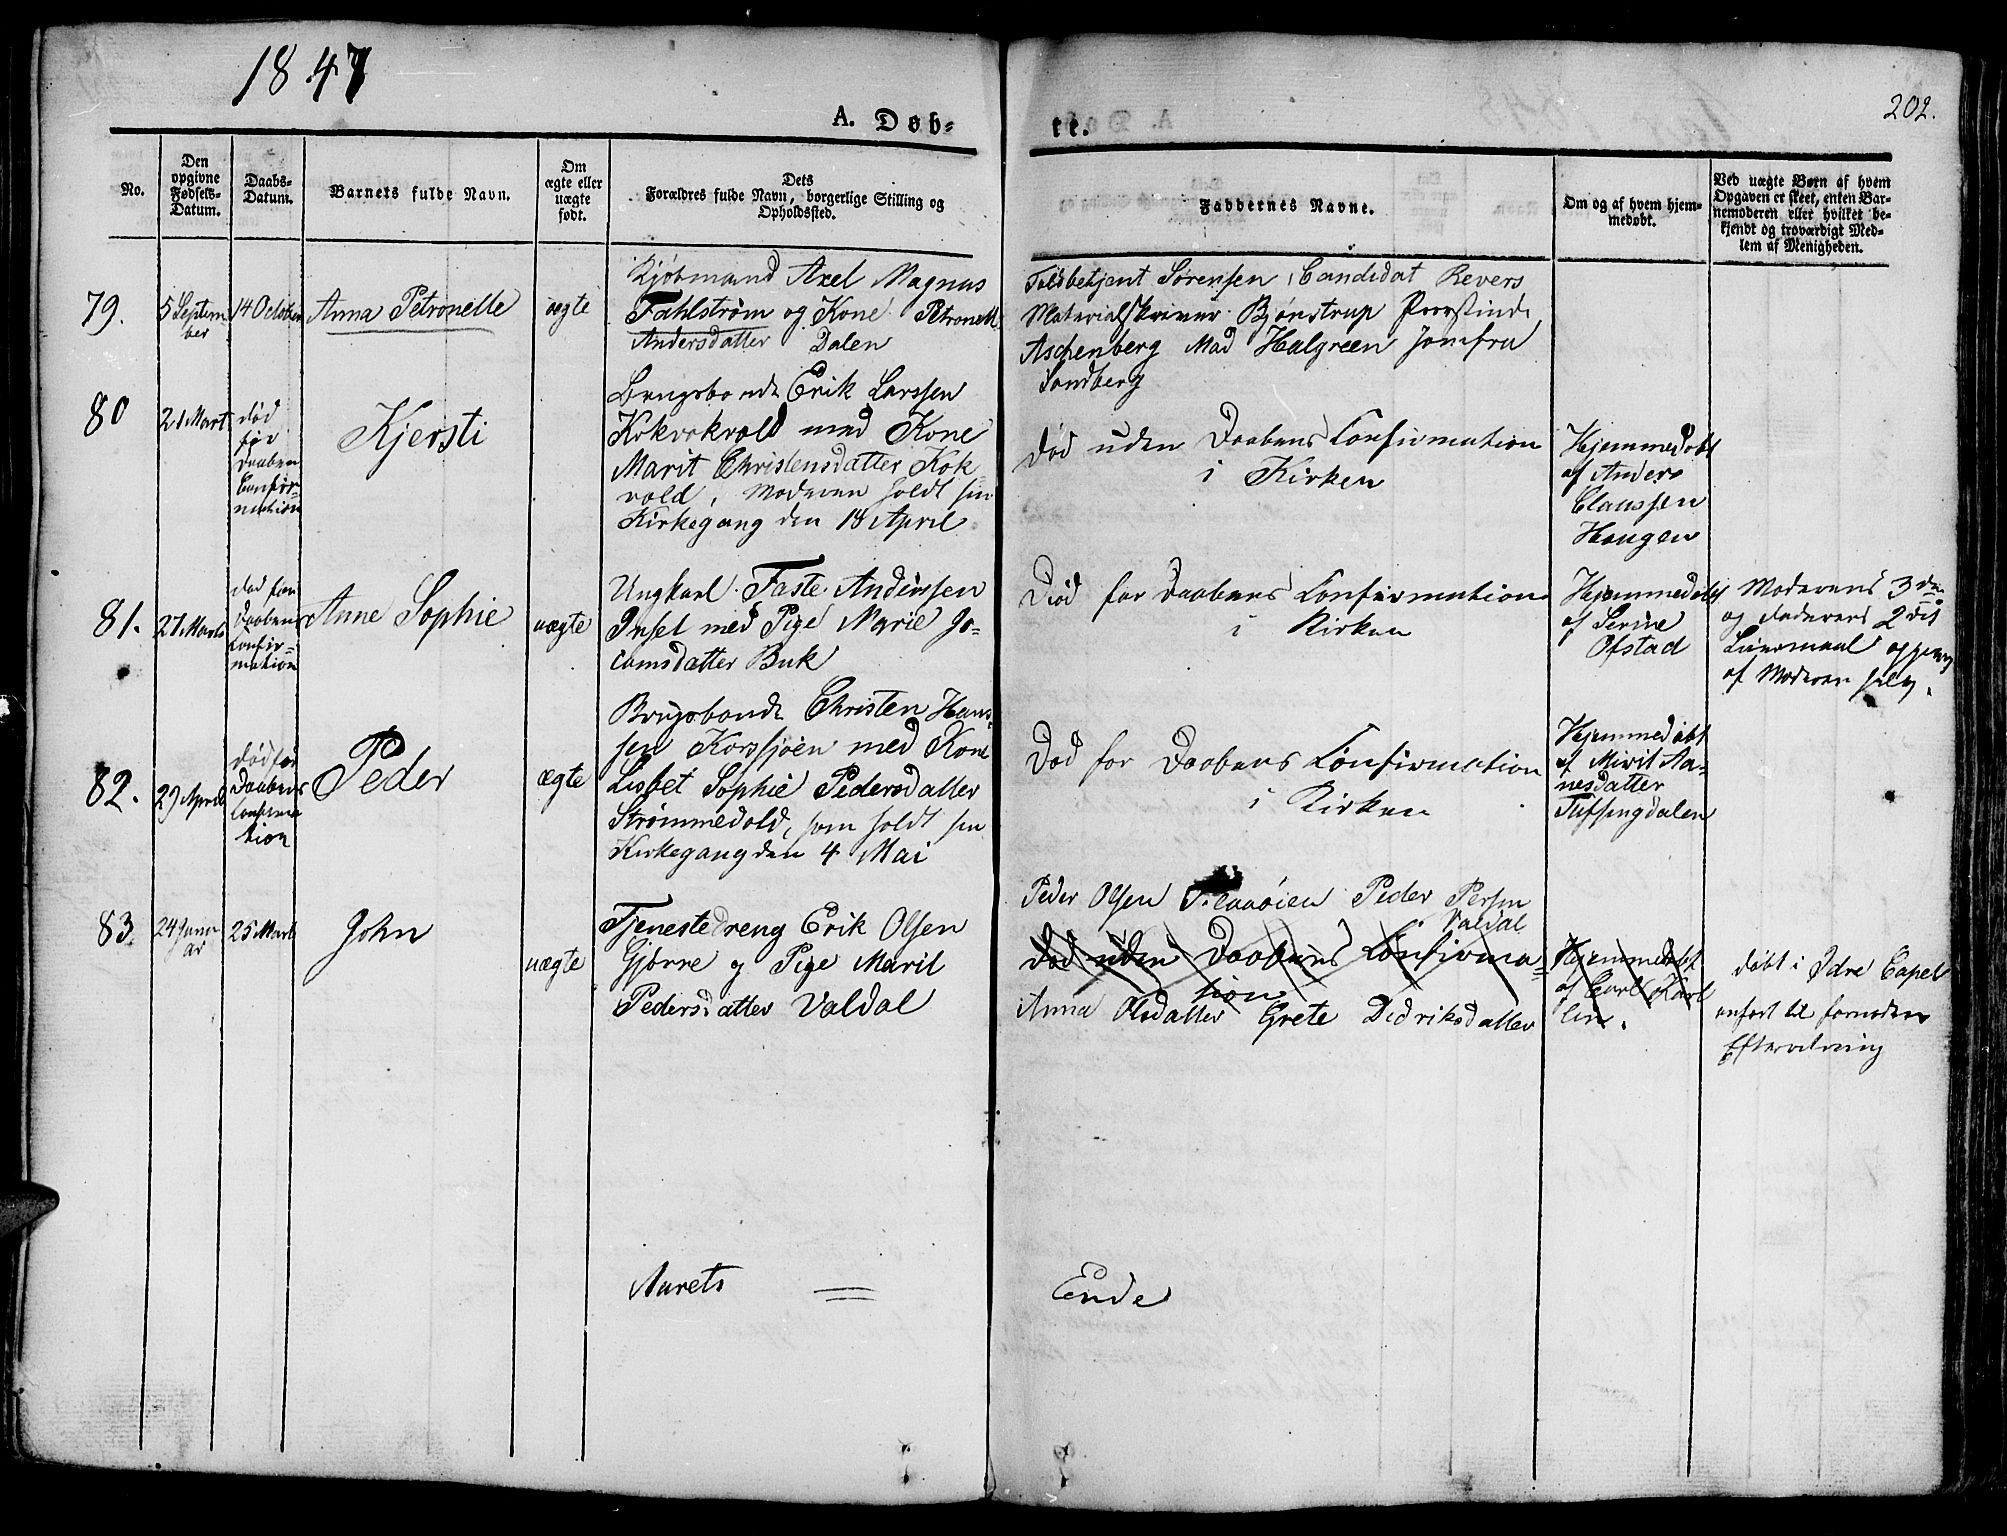 1847
202.
A. Døb-
te.
No.
Den
opgivne
Fødsels-
Datum.
Daabs-
Datum.
Barnets fulde Navn.
Om
ægte eller
uægte
født.
Dets
Forældres fulde Navn, borgerlige Stilling og
Opholdssted.
Faddernes Navne.
Om og af hvem hjem-
medøbt.
Ved uægte Børn af hvem
Opgaven er skeet, enten Bar-
nemoderen eller hvilket be-
kjendt og troværdigt Med-
lem af Menigheden.
79.
5 Septem-
ber
14 October
Anna Petronelle
ægte
Kjøbmand Axel Magnus
Fahlstrøm og Kone Petronell
Andersdatter Dalen
Sørensen, Candidat Revers
Materialskriver Bjønstrup Provstinde
Aschenberg Mad Halgreen Jomfru
Sandberg
80
21 Mart
død
før
Daaben
Confir-
mation
Kjersti
Brugsbonde Erik Larssen
Kokvokvold med Kone
Marit Christensdatter Kok
vold, Moderen holdt sin
Kirkegang den 18 April
Død uden Daabens Confirmation
i Kirken
Hjemmedøbt
af Anders
Claussen
Haugen
81.
21 Marts
død før
Daabens
Confir-
mation
Anne Sophie
uægte
Ungkarl Faste Anderssen
Insel med Pige Marie Jo-
camsdatter Buk
Død før Daabens Confirmation
i Kirken
Hjemmedøbt
af Serine
Ofstad
Moderens 3die
og Faderens 2det
Leiermaal opgivet
af Moderen selv.
82.
29 April
død før
Daabens
Confirma
tion
Peder
ægte
Brugsbonde Christen Hans-
sen Korssjøen med Kone
Lisbet Sophie Pedersdatter
Strømmevold, som holdt sin
Kirkegang den 4 Mai
Død før Daabens Confirmation
i Kirken
Hjemmedøbt
af Mirit Aa-
nesdatter
Tufsingdalen
83.
24 Janu
ar
25 Marts
John
uægte
Tjenestedreng Erik Olsen
Gjørre og Pige Marit
Pedersdatter Valdal
Peder Olsen Peder Persen
Valdal
død uden Daabens Confirma-
tion
Anna Olsdatter Grete Didriksdatter
Hjemmedøbt
af Carl Karl
lin.
døbt i Idre Capel
anført til fornøden
Efterretning
Aarets
Ende